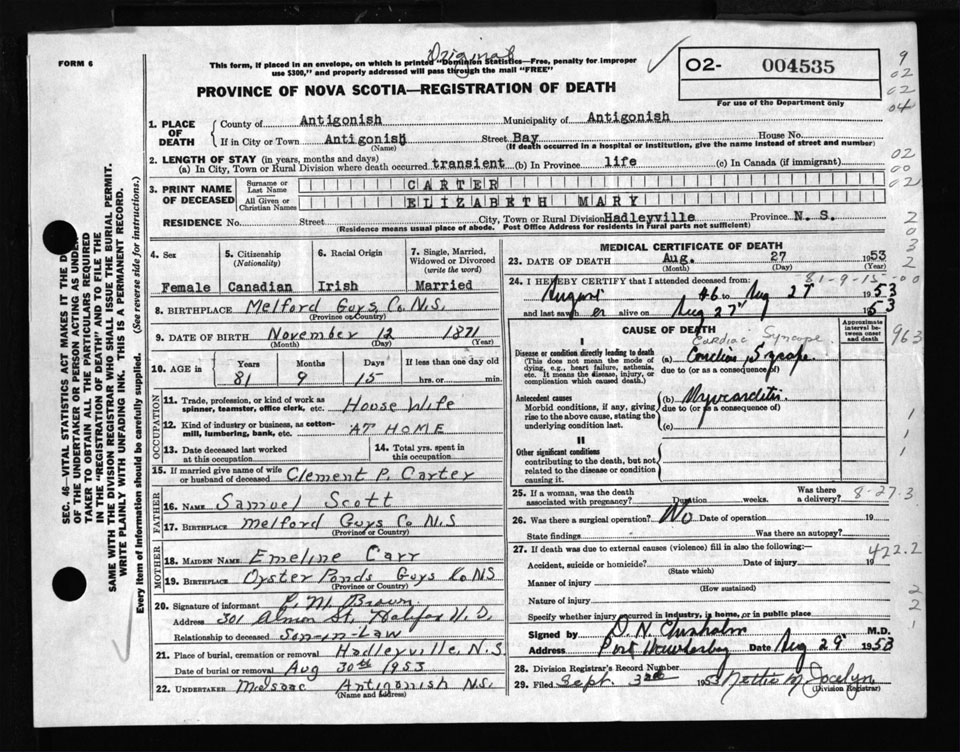 Original
FORM 6
This form, if placed in an envelope, on which is printed "Dominion Statistics—Free, penalty for improper
use $300," and properly addressed will pass through the mail "FREE"
O2- 004535
For use of the Department only
PROVINCE OF NOVA SCOTIA—REGISTRATION OF DEATH
9
02
02
04
02
00
02
2
0
3
2
1. PLACE OF DEATH
County of Antigonish Municipality of Antigonish
If in City or Town Antigonish Street Bay House No.
(Name) (If death occurred in a hospital or institution, give the name instead of street and number)
2. LENGTH OF STAY (in years, months and days)
(a) In City, Town or Rural Division where death occurred transient (b) In Province life (c) In Canada (if immigrant)
3. PRINT NAME OF DECEASED
Surname or Last Name CARTER
All Given or Christian Names ELIZABETH MARY
RESIDENCE No. Street City, Town or Rural Division Hadleyville Province N. S.
(Residence means usual place of abode. Post Office Address for residents in Rural parts not sufficient)
4. Sex
Female
5. Citizenship (Nationality)
Canadian
6. Racial Origin
Irish
7. Single, Married, Widowed or Divorced (write the word)
Married
8. BIRTHPLACE Melford Guys. Co. N.S.
(Province or Country)
9. DATE OF BIRTH November 12 1871
(Month) (Day) (Year)
10. AGE in Years Months Days If less than one day old
81 9 15 hrs. or min.
OCCUPATION
11. Trade, profession, or kind of work as
spinner, teamster, office clerk, etc. House Wife
12. Kind of industry or business, as cotton-
mill, lumbering, bank, etc. AT HOME
13. Date deceased last worked at this occupation
14. Total yrs. spent in this occupation
15. If married give name of wife
or husband of deceased Clement P. Carter
FATHER
16. NAME Samuel Scott
17. BIRTHPLACE Melford Guys Co N.S
(Province or Country)
MOTHER
18. MAIDEN NAME Emeline Carr
19. BIRTHPLACE Oyster Ponds Guys Co NS
(Province or Country)
20. Signature of informant P. M. Brown
Address 301 Almon St, Halifax N. S.
Relationship to deceased Son-in-Law
21. Place of burial, cremation or removal Hadleyville, N.S.
Date of burial or removal Aug 30th 1953
22. UNDERTAKER MacIsaac Antigonish N.S.
(Name and address)
MEDICAL CERTIFICATE OF DEATH
23. DATE OF DEATH Aug. 27 1953
(Month) (Day) (Year)
81-9-15-00
24. I HEREBY CERTIFY that I attended deceased from:
August 46 to Aug 27" 1953
and last saw her alive on Aug 27" 1953
CAUSE OF DEATH
Approximate interval between onset and death
963
I
Cardiac Syncope
Disease or condition directly leading to death
(This does not mean the mode of dying, e.g., heart failure, asthenia, etc. It means the disease, injury, or complication which caused death.)
(a) Cardiac Syncope.
due to (or as a consequence of)
Antecedent causes
Morbid conditions, if any, giving rise to the above cause, stating the underlying condition last.
(b) Myocarditis.
due to (or as a consequence of)
(c)
1
1
1
II
Other significant conditions
contributing to the death, but not related to the disease or condition causing it.
25. If a woman, was the death
associated with pregnancy? Duration weeks. Was there a delivery? 8-27-3
26. Was there a surgical operation? No Date of operation 19
State findings Was there an autopsy?
27. If death was due to external causes (violence) fill in also the following:—
422.2
Accident, suicide or homicide? Date of injury 19
(State which)
Manner of injury
(How sustained)
Nature of injury
2
2
1
Specify whether injury occurred in industry, in home, or in public place
Signed by D. N. Chisholm M.D.
Address Port Hawkesbury Date Aug 29" 1953
28. Division Registrar's Record Number
29. Filed Sept. 3rd 1953 Nettie M Jocelyn
(Division Registrar)
SEC. 46—VITAL STATISTICS ACT MAKES IT THE
OF THE UNDERTAKER OR PERSON ACTING AS
TAKER TO OBTAIN ALL THE PARTICULARS REQUIRED
IN THE "REGISTRATION OF DEATH" AND TO FILE THE
SAME WITH THE DIVISION REGISTRAR WHO SHALL ISSUE THE BURIAL PERMIT.
WRITE PLAINLY WITH UNFADING INK. THIS IS A PERMANENT RECORD.
Every item of information should be carefully supplied. (See reverse side for instructions.)